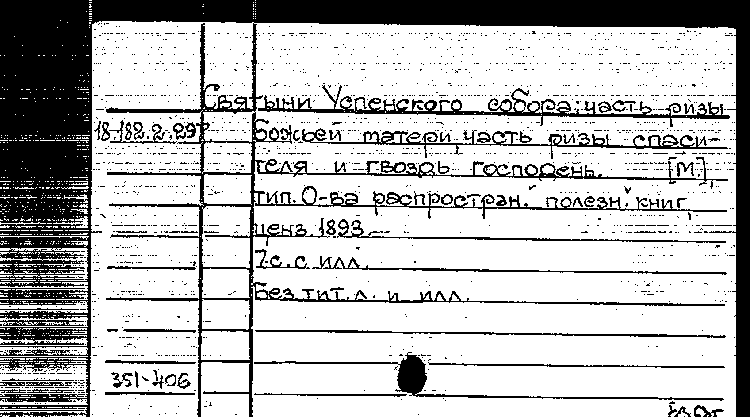 Святыни Успенского собора: часть ризы
18.182.2.297 Божьей матери, часть ризы спаси-
теля и гвоздь господень. [М],
тип. О-ва распростран. полезн. книг,
ценз. 1893.
7с. с илл.
Без тит. л. и илл.
351-406